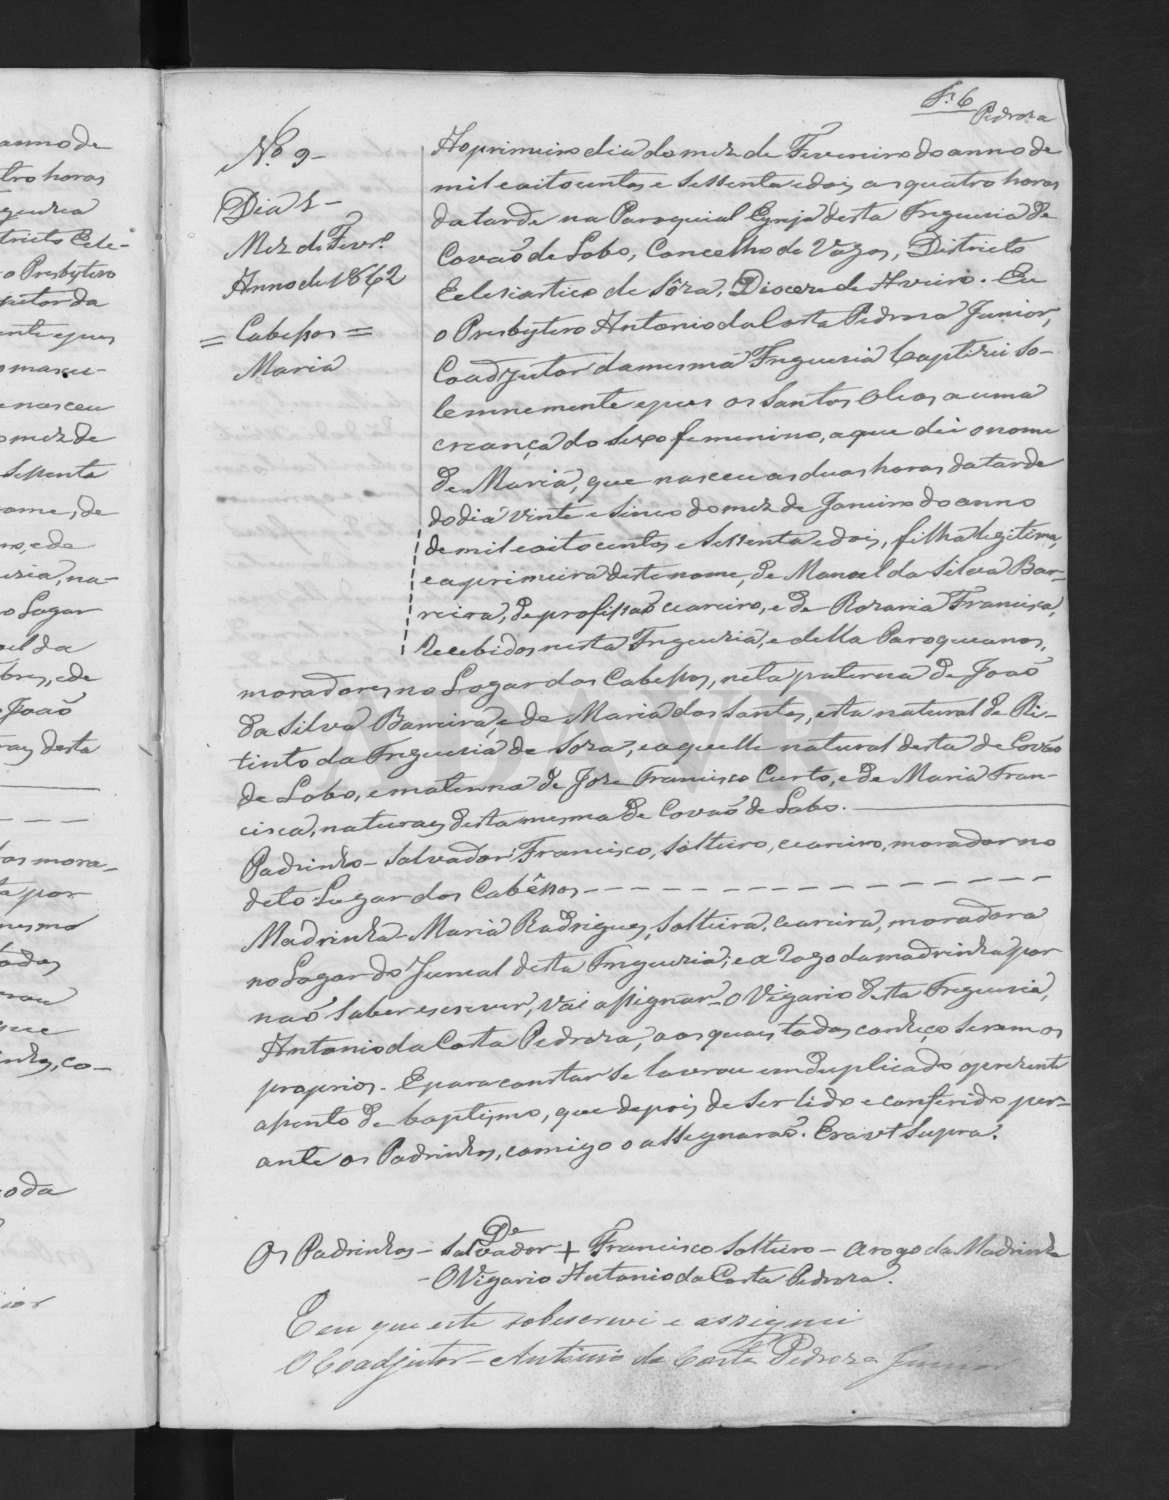 F. 6
Pedroza
Nº 9-
Dia 1-
Mez de Fevrº
Anno de 1862
= Cabessos =
Maria
Ao primeiro dia do mez de Fevereiro do anno de
mil eoitocentos e sessenta edois as quatro horas
da tarde na Paroquial Egreja desta Freguezia de
Covaõ de Lobo, Concelho de Vagos, Districto
Eclesiastico de Sôza, Diocese de Aveiro. Eu
o Presbytero Antonio da Costa Pedroza Junior,
Coadjutor damesma Freguezia baptizei So-
lemnemente epus os Santos Oleos a uma
creança do sexo femenino, aque dei o nome
de Maria, que nasceu as duas horas da tarde
do dia vinte e sinco do mez de Janeiro do anno
de mil eoitocentos e sessenta edois, filha legitima,
e aprimeira deste nome, de Manoel da Silva Bar-
reira, de profissaõ ceareiro, e de Rozaria Francisca,
recebidos nesta Freguezia, e della Paroqueanos,
moradores no Logar dos Cabessos, neta paterna de Joaõ
da Silva Barreira, e de Maria dos Santos, esta natural de Ri-
tinto da Freguezia de Soza, eaquelle natural desta de Covaõ
de Lobo, e materna de Joze Francisco Curto, e de Maria Fran-
cisca, naturaes desta mesma de Covaõ de Lobo.
Padrinho - Salvador Francisco, solteiro, ceareiro, morador no
dito Lugar dos Cabêssos
Madrinha - Maria Rodrigues, solteira, ceareira, moradora
no Logar do Juncal desta Freguezia, e a rogo da madrinha por
naõ saber escrever, vai assignar - O Vigario desta Freguezia,
Antonio da Costa Pedroza, aos quaes todos conheço serem os
proprios. E para constar se lavrou em duplicado o prezente
assento de baptismo, que depois de ser lido e conferido per-
ante os Padrinhos, comigo o assegnaraõ. Era ut supra.
Os Padrinhos - Salvador De + Francisco Solteiro - Arogo da Madrinha
- O Vigario Antonio da Costa Pedroza.
E eu que este sobescrevi e assignei
O Coadjutor - Antonio da Costa Pedroza Junior
anno de
tro horas
guezia
tricto Ecle-
o Presbytero
jutor da
ente epus
o mascu-
e nasceu
o mez de
Sessenta
ome, de
ro, e de
uezia, na-
o Logar
oel da
bres, e de
Joaõ
raes desta
dos mora-
ta por
mesmo
todos
que
inhos, co-
o da
ior
ADAVR